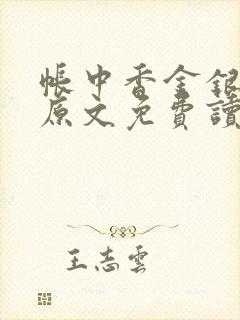 帳中香金銀
原文免費讀
王志雲